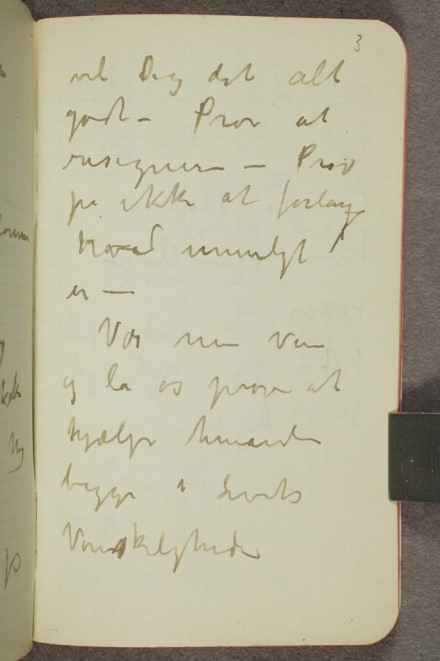 3
vel Dig det alt
godt – Prøv at
resignere – Prøv
på ikke at forlange
hvad umuligt
er —
Vær min ven
og la os prøve at
hjælpe hinanden
begge i Livets
Vanskeligheder